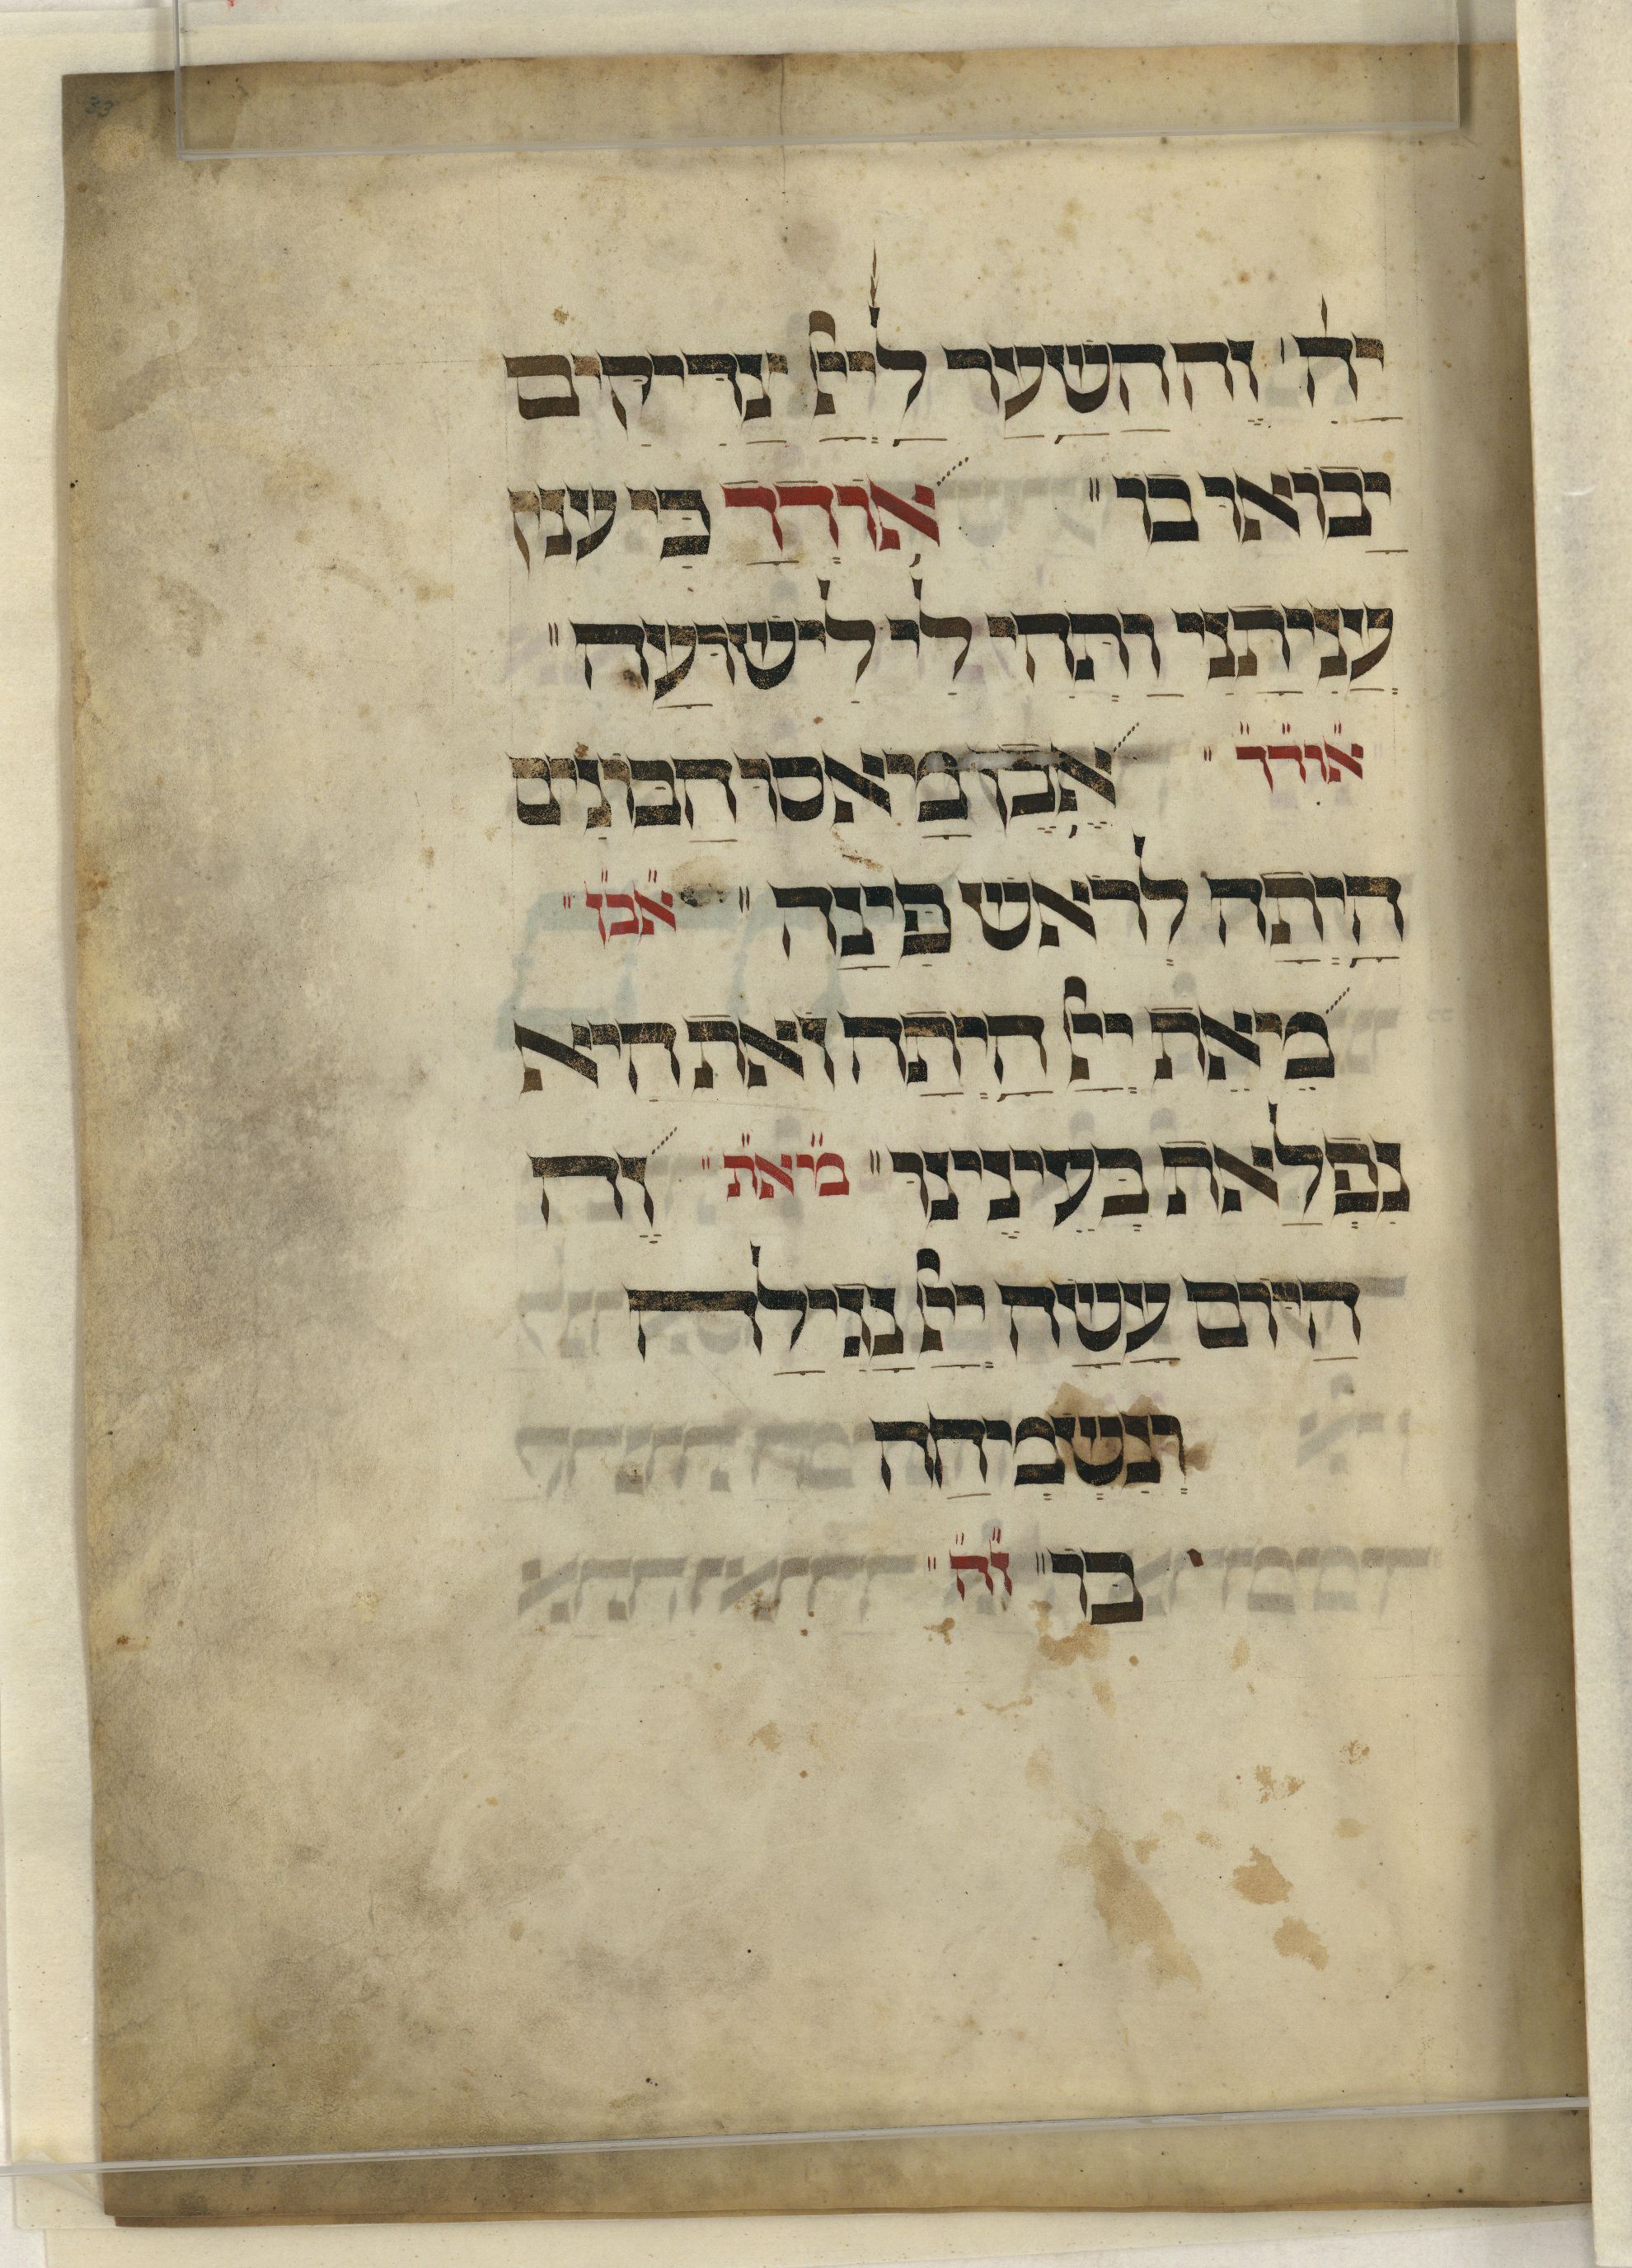 יָהּ׳ זֶה הַשַׁעַר לַיְיָ צַדִיקִים
יָבוֹאוּ בוֹ׃ אוֹדְךָ כִּי ענין
עֲנִיתָנִי וַתְּהִי לִי לִישׁוּעָה׃
אודך׃ אֶבֶן מָאסוּ הַבּוֹנִים
הָיְתָה לְרֹאשׁ פִּינָה׃ אבן׃
מֵיאֵת יְיָ הָיְתָה זֹאת הִיא
נִפְלָאת בְּעֵינֵינוּ׃ מאת׃ זֶה
הַיּוֹם עָשָׂה יְיָ נָגִילָה
וְנִשְׂמְיחָה
בוֹ׃ זה׃
33